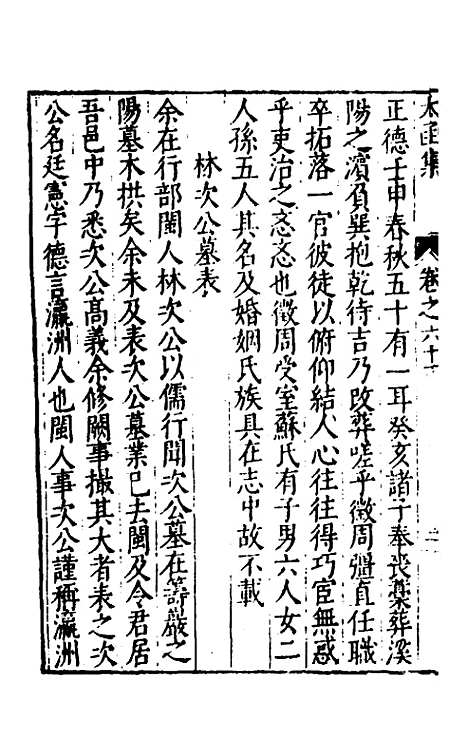 太函集 卷之六十
正德壬申春秋五十有一耳癸亥諸子奉喪藁葬溪
陽之濱負巽抱乾待吉乃改葬嗟乎徵周彊直任職
卒拓落一官彼徒以俯仰結人心往往得巧宦無惑
乎吏治之忞忞也徵周受室蘇氏有子男六人女二
人孫五人其名及婚姻氏族具在志中故不載
林次公墓表
余在行部閩人林次公以儒行聞次公墓在籌巖之
陽墓木拱矣余未及表次公墓業已去閩及令君居
吾邑中乃悉次公高義余修闕事撮其大者表之次
公名廷憲字德言瀛洲人也閩人事次公謹稱瀛洲